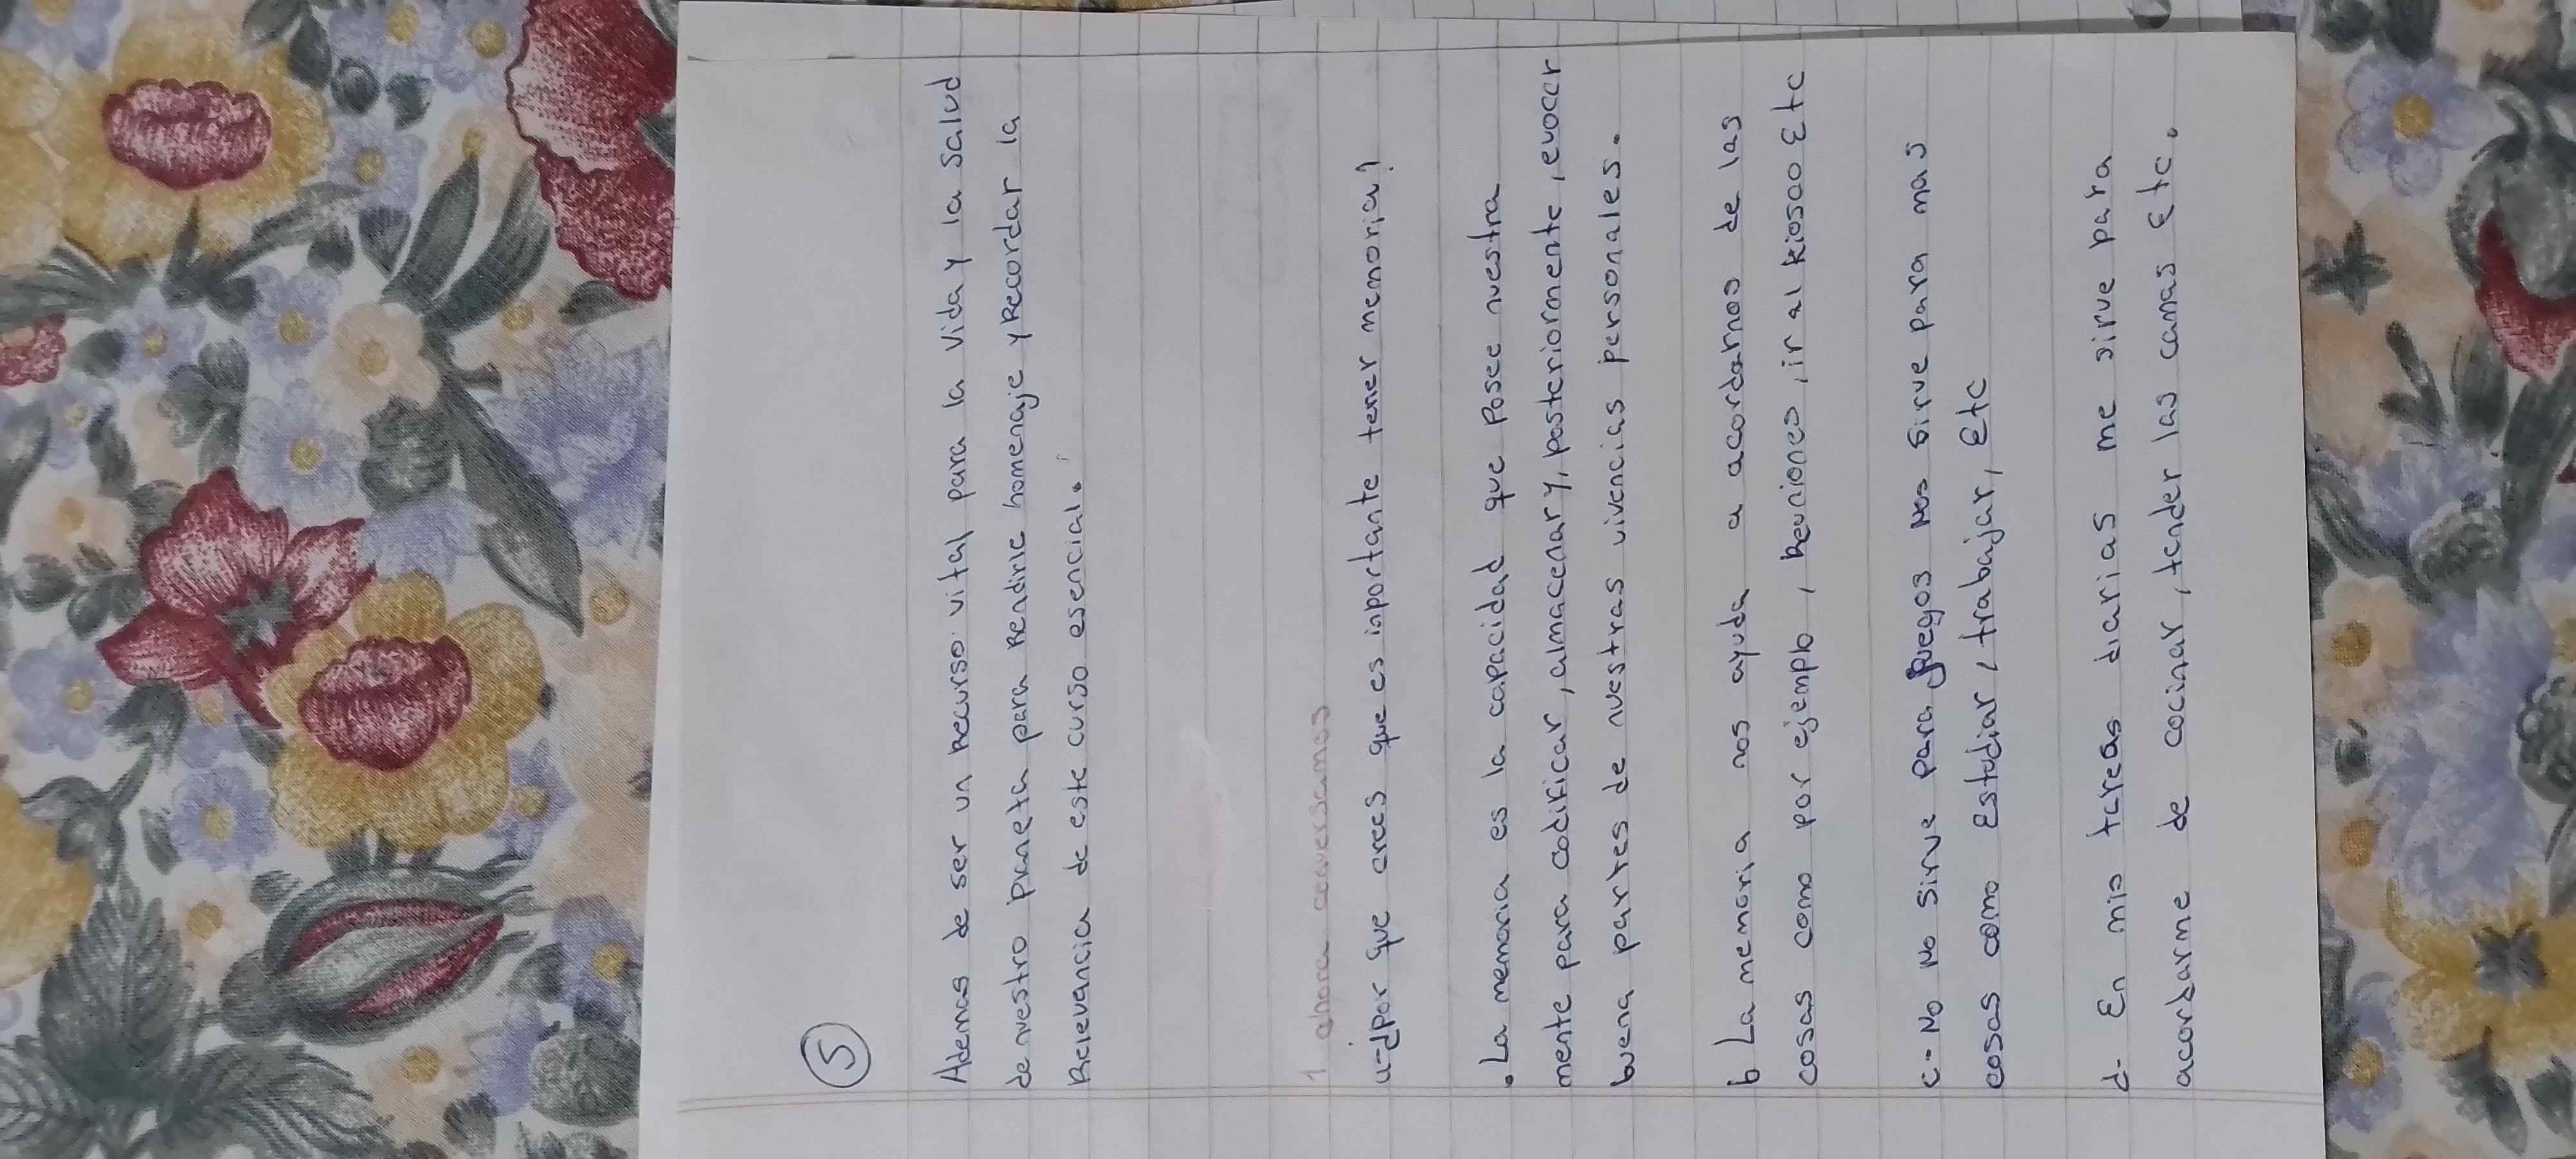 5
Ademas de ser un Recurso vital para la vida y la salud
de nuestro planeta para Rendirle homenaje y Recordar la
Relevancia de este curso esencial.
1 ahora conversamos
a-¿por que crees que es inportante tener memoria?
• La memoria es la capacidad que Posee nuestra
mente para codificar, almacenar y, posteriormente, evocar
buena partes de nuestras vivencias personales.
b La memoria nos ayuda a acordarnos de las
cosas como por ejemplo, Reuniones, ir al kiosco Etc
c- No No sirve para Juegos Nos Sirve para mas
cosas como Estudiar, trabajar, Etc
d- En mis tareas diarias me sirve para
acordarme de cocinar, tender las camas Etc.